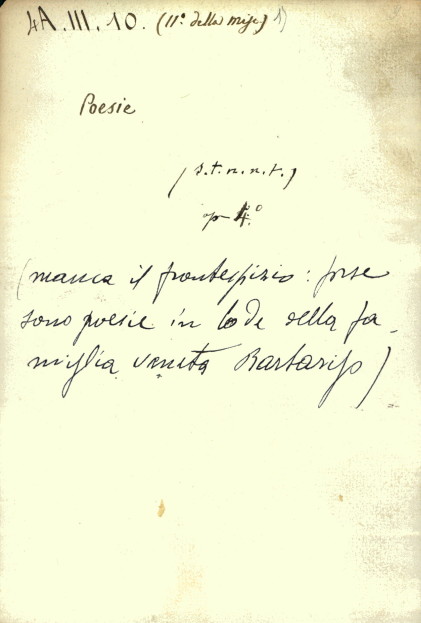 4A.III.10. (11° della misc)
Poesie
(s.t.n.n.t.)
4°
(manca il frontespizio: forse
sono poesie in lode della fa-
miglia veneta Barbarigo)